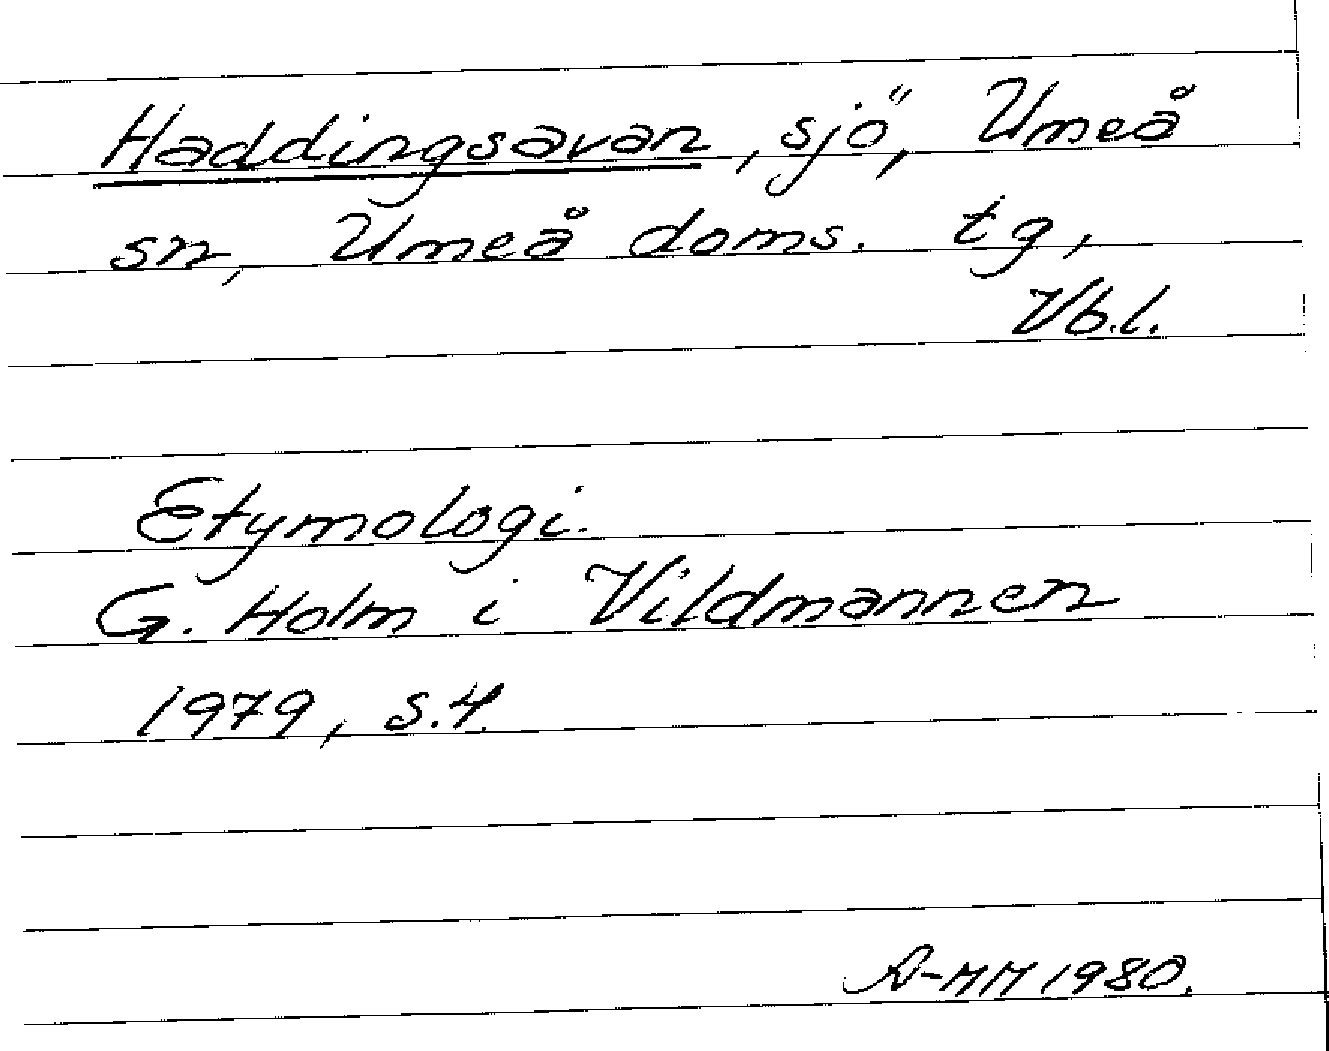 Haddingsavan, sjö, Umeå
sn, Umeå doms. tg,
Vb.l.
Etymologi.
G. Holm i Vildmannen
1979, s.4.
A-MM 1980.